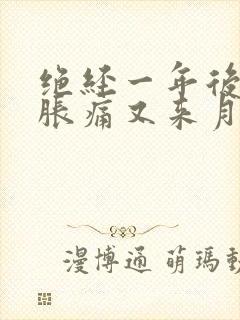 绝经一年後
脹痛又来月
漫博通 萌瑪動